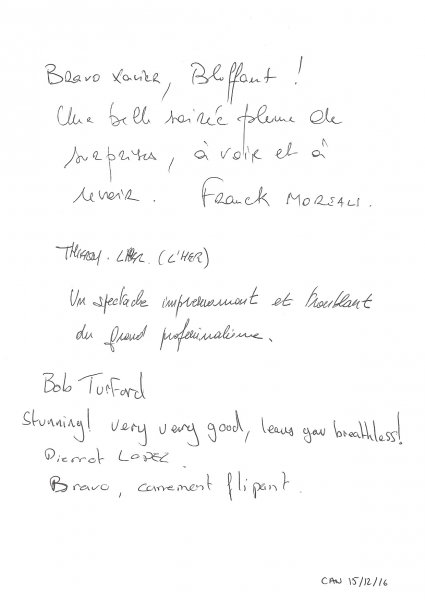 Bravo Xavier, Bloffant !
Une belle soirée pleine de
surprises, à voir et à
revoir. Franck MOREAU.
THIERRY. (L'HER)
Un spectacle impressionnant et troublant
du grand professionnalisme.
Bob Turford
Stunning! very very good, leaves you breathless!
Pierrot LOPEZ.
Bravo, carrement flipant.
CAN 15/12/16